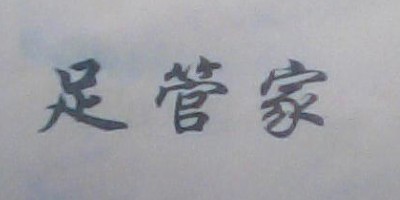 足管家